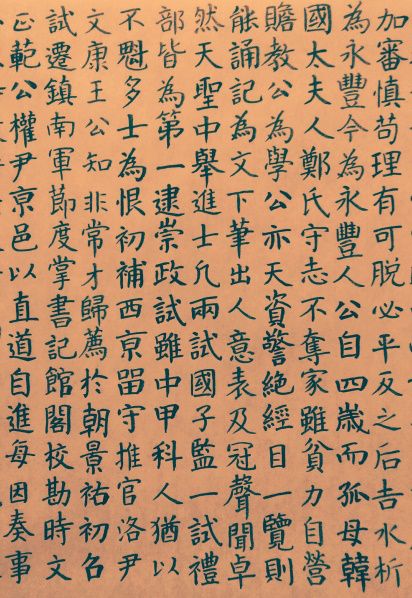 加審慎苟理有可脫必平反之后吉水析
為永豐今為永豐人公自四歲而孤母韓
國太夫人鄭氏守志不奪家雖貧力自營
贍教公為學公亦天資警絕經目一覽則
能誦記為文下筆出人意表及冠聲聞卓
然天聖中舉進士凡兩試國子監一試禮
部皆為第一逮崇政試雖中甲科人猶以
不魁多士為恨初補西亰留守推官洛尹
文康王公知非常才歸薦於朝景祐初召
試遷鎮南軍節度掌書記館閣校勘時文
正範公權尹亰邑以直道自進每因奏事